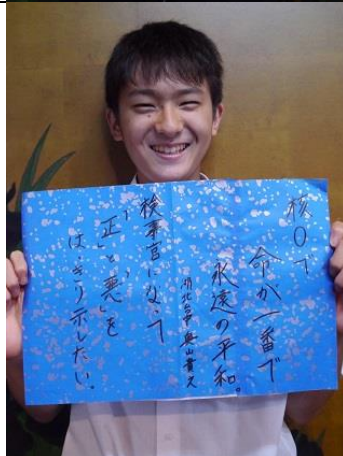 核0で
命が一番で
永遠の平和。
湖北台中 奥山
検事官になって
「正」と「悪」を
はっきり示したい。